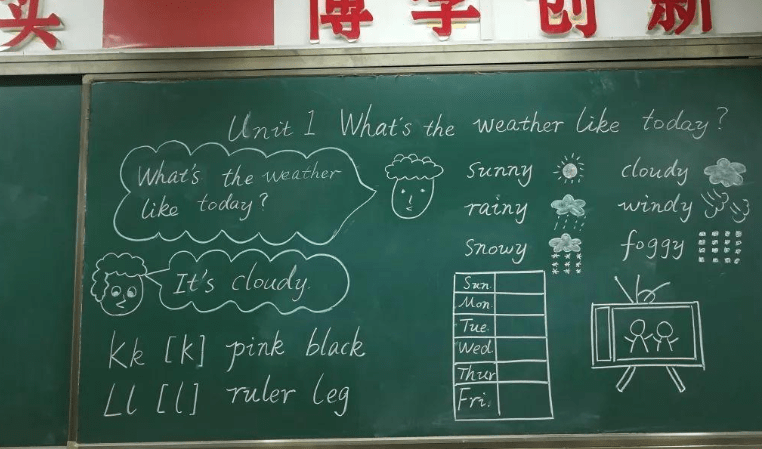 实 博学创新
Unit 1 What's the weather like today?
What's the weather
like today?
It's cloudy.
Kk [k] pink black
Ll [l] ruler leg
sunny cloudy
rainy windy
snowy foggy
Sun.
Mon.
Tue.
Wed
Thur
Fri.